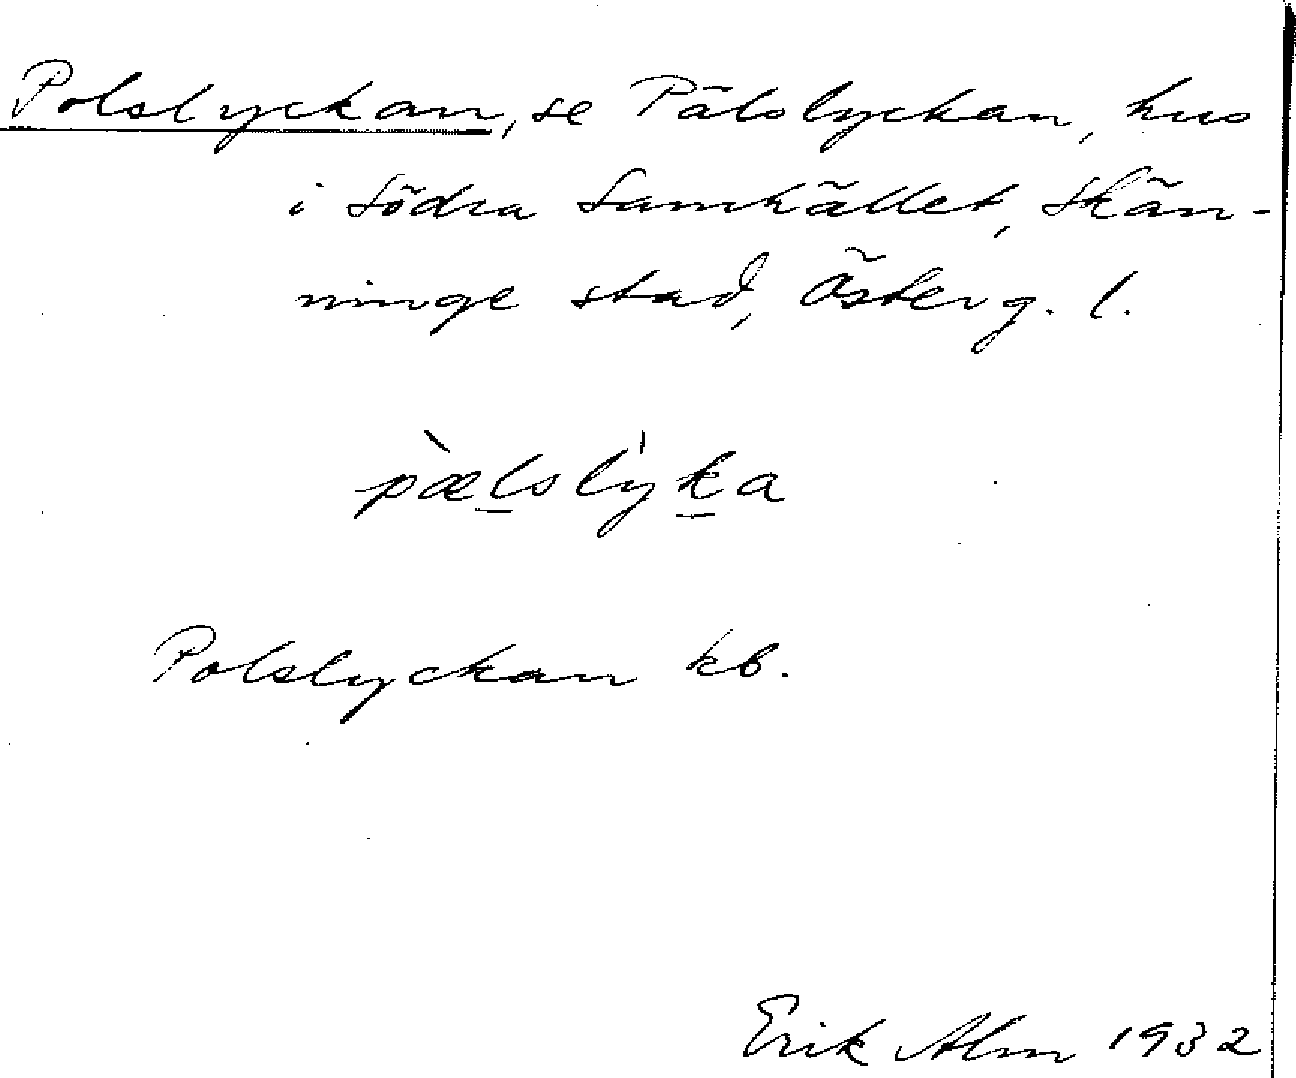 Polslyckan, se Pälslyckan, hus
i Södra Samhället, Skän-
ninge stad, Österg. l.
pæ̀lslýka
Polslyckan kb.
Erik Alm 1932